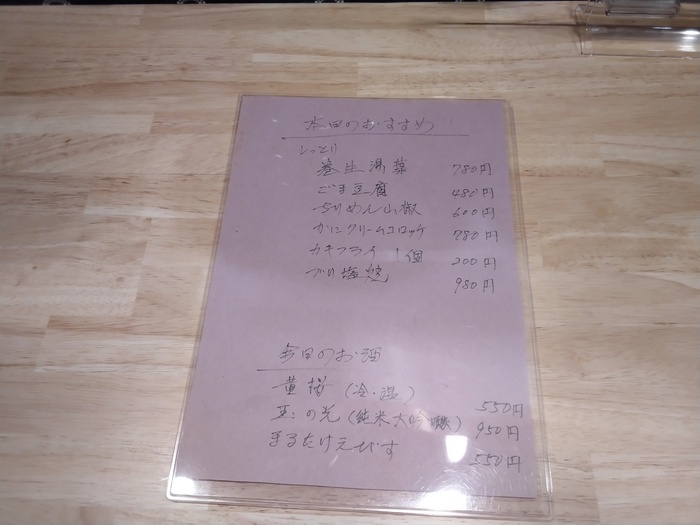 本日のおすすめ
しっとり
巻生湯葉 780円
ごま豆腐 480円
ちりめん山椒 600円
かにクリームコロッケ 780円
カキフライ 1個 200円
ブリ塩焼 980円
今日のお酒
黄桜 (冷・温) 550円
玉の光 (純米大吟醸) 950円
まるたけえびす 550円